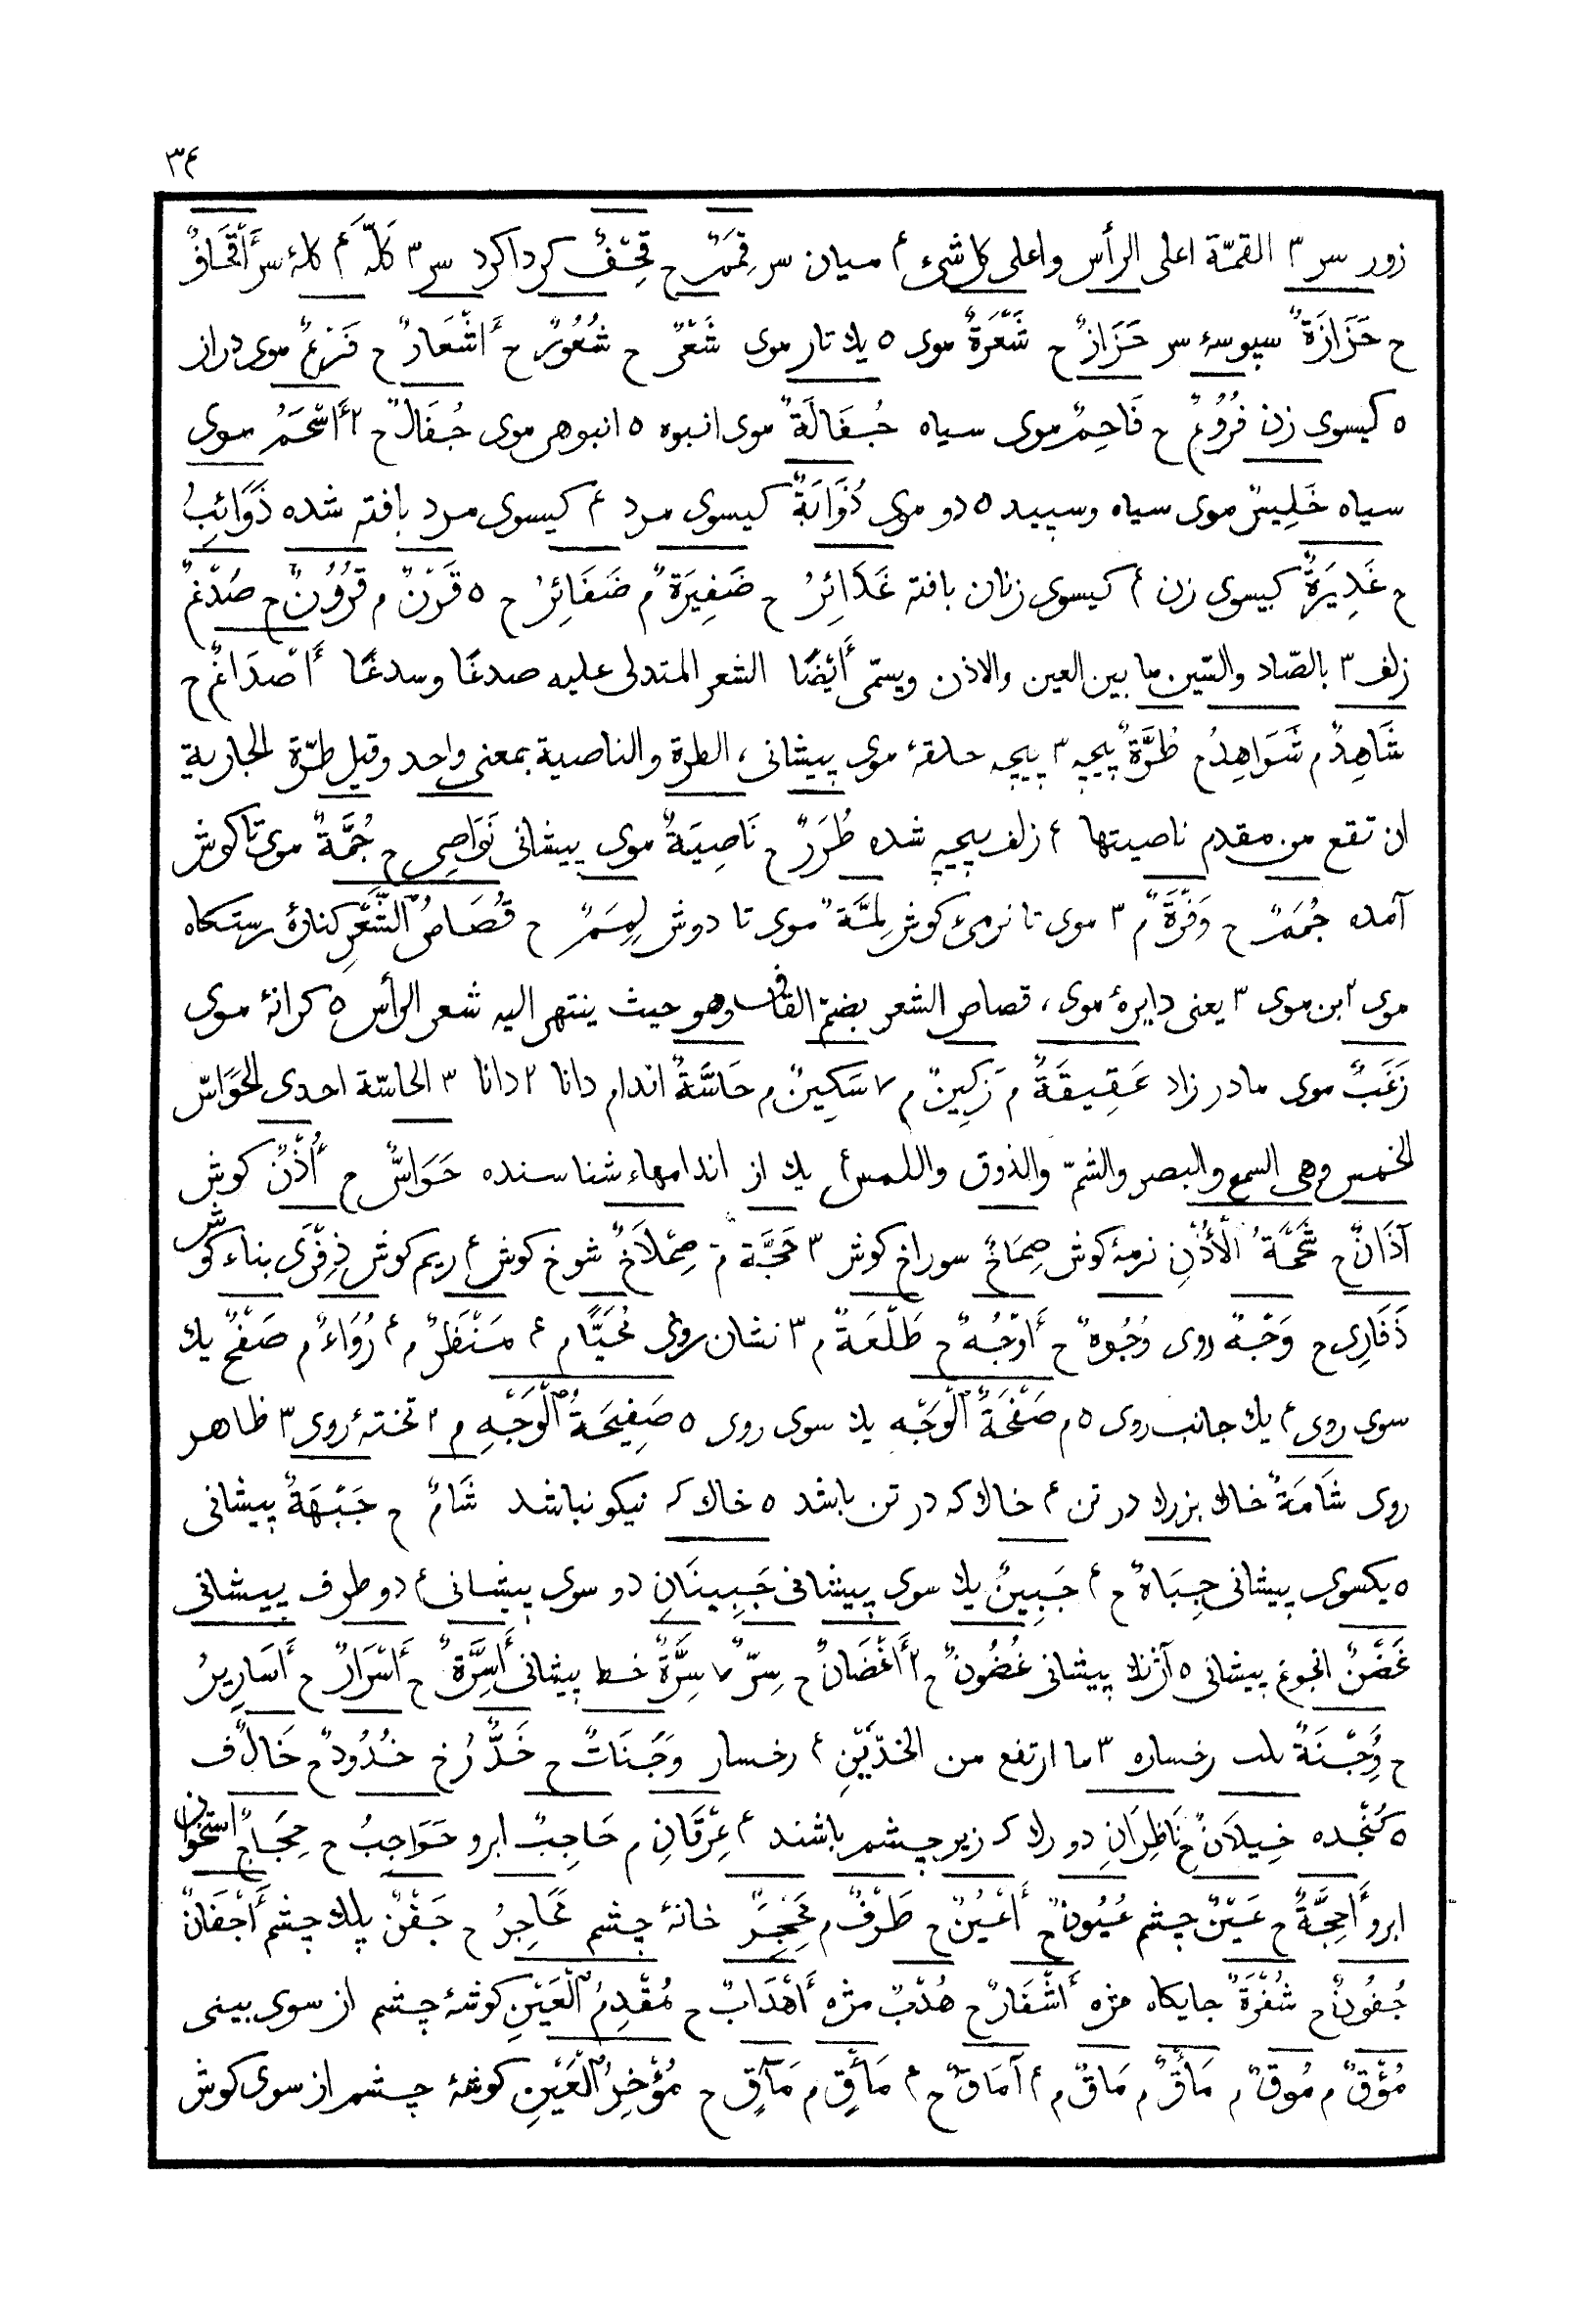 ۳۴
زور سر ۳ القمّة اعلى الرأس واعلى كل شىء ۴ ميان سر قِمَمٌ ح قِحْفٌ كرداكرد سر ۳ كَلّه ۴ كلهٔ سر أَقْحَافٌ
ح حَزَازَةٌ سبوسهٔ سر حَزَازٌ ح شَعْرَةٌ موى ٥ يك تار موى شَعْرٌ ح شُعُورٌ ح أَشْعَارٌ ح فَرْعٌ موى دراز
٥ كيسوى زن فُرُوعٌ ح فَاحِمٌ موى سياه جُفَالَةٌ موى انبوه ٥ انبوهى موى جُفَالٌ ح ۲ أَسْحَمُ موى
سياه خَلِيسٌ موى سياه وسپيد ٥ دو موى ذُؤَابَةٌ كيسوى مرد ۴ كيسوى مرد بافته شده ذَوَائِبُ
ح غَدِيرَةٌ كيسوى زن ۴ كيسوى زنان بافته غَدَائِرُ ح ضَفِيرَةٌ م ضَفَائِرُ ح ٥ قَرْنٌ م قُرُونٌ ح صُدْغٌ
زلف ۳ بالصّاد والسّين ما بين العين والاذن ويسمّى أَيْضًا الشعر المتدلى عليه صدغًا وسدغًا أَصْدَاغٌ ح
شَاهِدٌ م شَوَاهِدُ ح طُرَّةٌ پيچه ۳ پيچه حلقهٔ موى پيشانى، الطرة والناصية بمعنى واحد وقيل طرّة الجارية
ان تقع من مقدم ناصيتها ۴ زلف پيچيه شده طُرَرٌ ح نَاصِيَةٌ موى پيشانى نَوَاصِى ح جُمَّةٌ موى تا كوش
آمده جُمَمٌ ح وَفْرَةٌ م ۳ موى تا نرمىٔ كوش لِمَّةٌ موى تا دوش لِمَمٌ ح قُصَاصُ الشَّعْرِ كنارهٔ رستكاه
موى ۲ بن موى ۳ يعنى دايرهٔ موى، قصاص الشعر بضمّ القاف وهو حيث ينتهى اليه شعر الرأس ٥ كرانهٔ موى
زَغَبٌ موى مادر زاد عَقِيقَةٌ م زَكِينٌ م ۷ سَكِينٌ م حَاسَّةٌ اندام دانا ۲ دانا ۳ الحاسّة احدى الحَوَاسّ
الخمس وهى السمع والبصر والشمّ والذوق واللمس ۴ يك از اندامهاء شناسنده حَوَاسُّ ح أُذُنٌ كوش
آذَانٌ ح شَحْمَةُ الْأُذُنِ نرمهٔ كوش صِمَاخٌ سوراخ كوش ۳ مَحَجَّةٌ م صِمْلَاخٌ شوخ كوش ۴ ريم كوش ذِفْرَى بناء كوش
ذَفَارِى ح وَجْهٌ روى وُجُوهٌ ح أَوْجُهٌ ح طَلْعَةٌ م ۳ نشان روى مُحَيًّا م ۴ مَنْظَرٌ م ۴ رُوَاءٌ م صَفْحٌ يك
سوى روى ۴ يك جانب روى ٥ م صَفْحَةُ الْوَجْهِ يك سوى روى ٥ صَفِيحَةُ الْوَجْهِ م ۲ تختهٔ روى ۳ ظاهر
روى شَامَةٌ خاك بزرك در تن ۴ خاك كه در تن باشد ٥ خاك كه نيكو نباشد شَامٌ ح جَبْهَةٌ پيشانى
٥ يكسوى پيشانى جِبَاهٌ ح ۴ جَبِينٌ يك سوى پيشانى جَبِينَانِ دو سوى پيشانى ۴ دو طرف پيشانى
غَضْنٌ انجوغ پيشانى ٥ آژنك پيشانى غُضُونٌ ح ۲ أَغْضَانٌ ح سِرٌّ ۷ سِرَّةٌ خط پيشانى أَسِرَّةٌ ح أَسْرَارٌ ح أَسَارِيرُ
ح وَجْنَةٌ رخساره ۳ ما ارتفع من الخدّيْنِ ۴ رخسار وَجَنَاتٌ ح خَدٌّ رُخ خُدُودٌ ح خَالٌ ف
٥ كُنْجده خِيلَانٌ ح نَاظِرَانِ دو رك كه زير چشم باشند ۴ عِرْقَانِ م حَاجِبٌ ابرو حَوَاجِبُ ح حِجَاجٌ استخوان
ابرو أَحِجَّةٌ ح عَيْنٌ چشم عُيُونٌ ح أَعْيُنٌ ح طَرْفٌ م مَحْجِرٌ خانهٔ چشم مَحَاجِرُ ح جَفْنٌ پلك چشم أَجْفَانٌ
جُفُونٌ ح شُفْرَةٌ جايكاه مژه أَشْفَارٌ ح هُدْبٌ مژه أَهْدَابٌ ح مُقْدِمُ الْعَيْنِ كوشهٔ چشم از سوى بينى
مُؤْقٌ م مُوقٌ م مَأْقٌ م مَاقٌ م ۴ آمَاقٌ ح ۴ مَأْقٍ م مَآقٍ ح مُؤْخِرُ الْعَيْنِ كوشهٔ چشم از سوى كوش